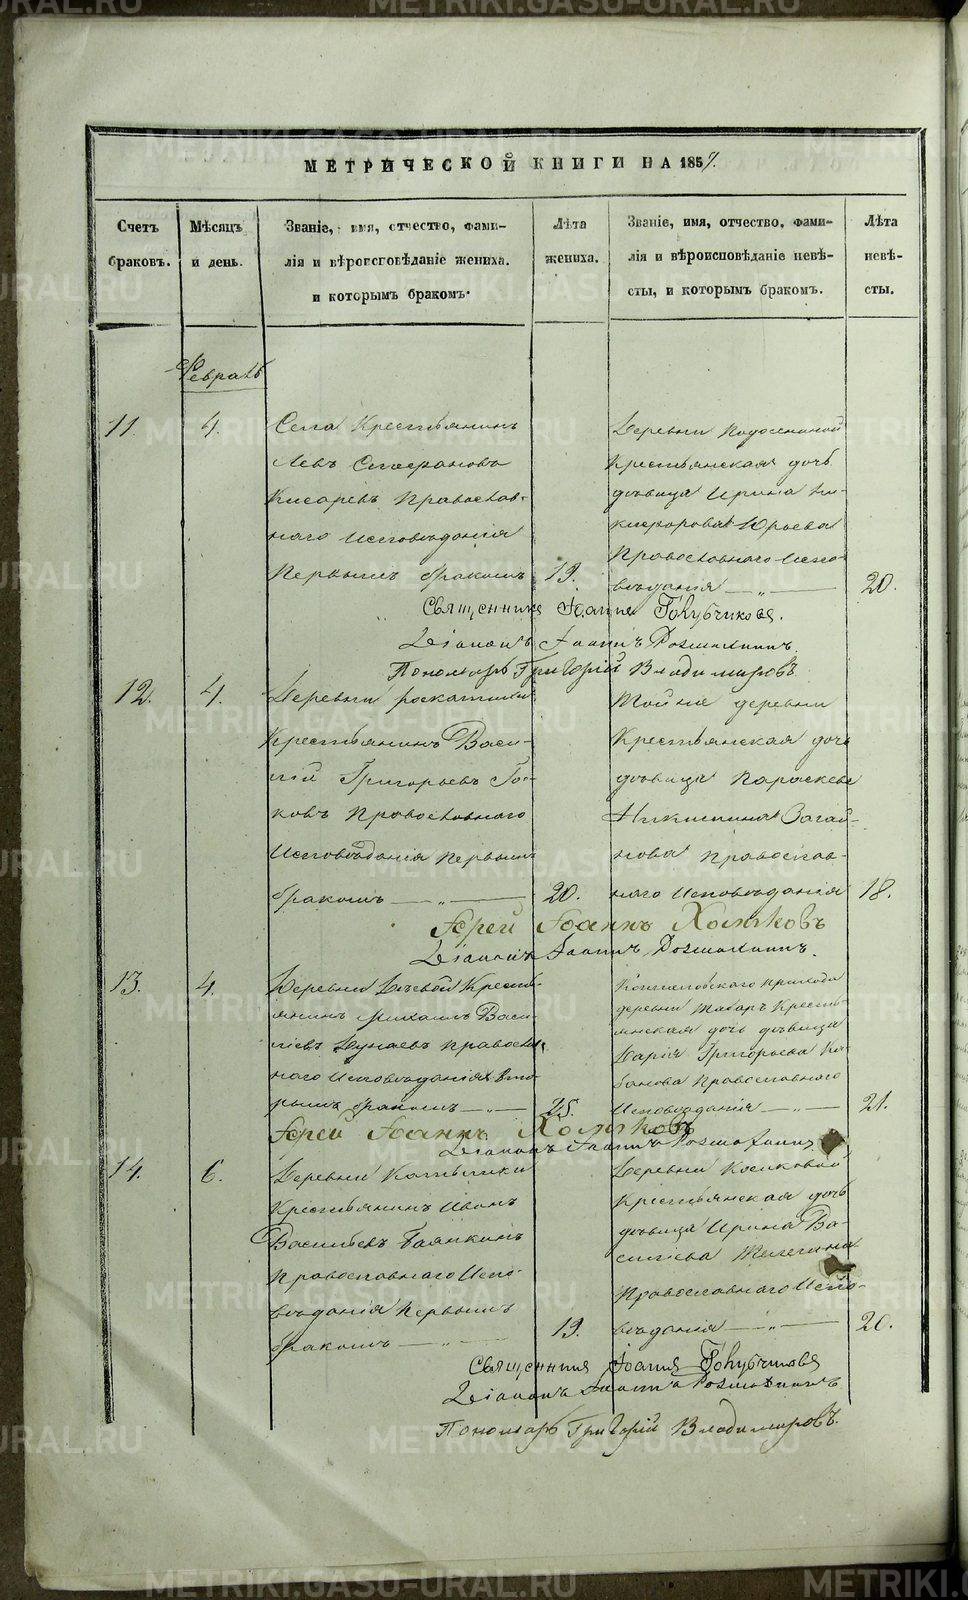 МЕТРИЧЕСКОЙ КНИГИ НА 1857.
Счетъ браковъ.
Мѣсяцъ и день.
Званіе, имя, отчество, фами-
лія и вѣроисповѣданіе жениха.
и которымъ бракомъ.
Лѣта жениха.
Званіе, имя, отчество, фами-
лія и вѣроисповѣданіе невѣ-
сты, и которымъ бракомъ.
Лѣта невѣ-
сты.
Февраль
11.
4.
Села Крестьянинъ
Левъ Стефановъ
Кисаревъ Православ-
наго Исповѣданія
Первымъ бракомъ
19.
Деревни
Крестьянская дочь
дѣвица Ирина Ни-
кифорова Юрьева
Православнаго Испо-
вѣданія — „ —
20.
Священникъ Іоаннъ Голубчиковъ.
Діаконъ Іоаннъ
Пономарь Григорій Владимировъ
12.
4.
Деревни
Крестьянинъ Васи-
лій Григорьевъ
ковъ Православнаго
Исповѣданія Первымъ
бракомъ — „ —
20.
Той же деревни
Крестьянская дочь
дѣвица Параскева
Никитина Загай-
нова Православ-
наго Исповѣданія
18.
Іерей Іоаннъ Холмковъ
Діаконъ Іоаннъ
13.
4.
Деревни Кресть-
янинъ Михаилъ Васи-
лівъ Дунаевъ Православ-
наго Исповѣданія Вто-
рымъ бракомъ — „ —
25.
прихода
деревни Табаръ Кресть-
янская дочь дѣвица
Дарія Григорьева Ка-
банова Православнаго
Исповѣданія — „ —
21.
Іерей Іоаннъ Холмковъ
Діаконъ Іоаннъ
14.
6.
Деревни
Крестьянинъ Иванъ
Васильевъ
Православнаго Испо-
вѣданія Первымъ
бракомъ — „ —
19.
Деревни Косиковой
Крестьянская дочь
дѣвица Ирина Ва-
силіева Телегина
Православнаго Испо-
вѣданія — „ —
20.
Священникъ Іоаннъ Голубчиковъ
Діаконъ Іоаннъ
Пономарь Григорій Владимировъ
METRIKI.GASO-URAL.RU